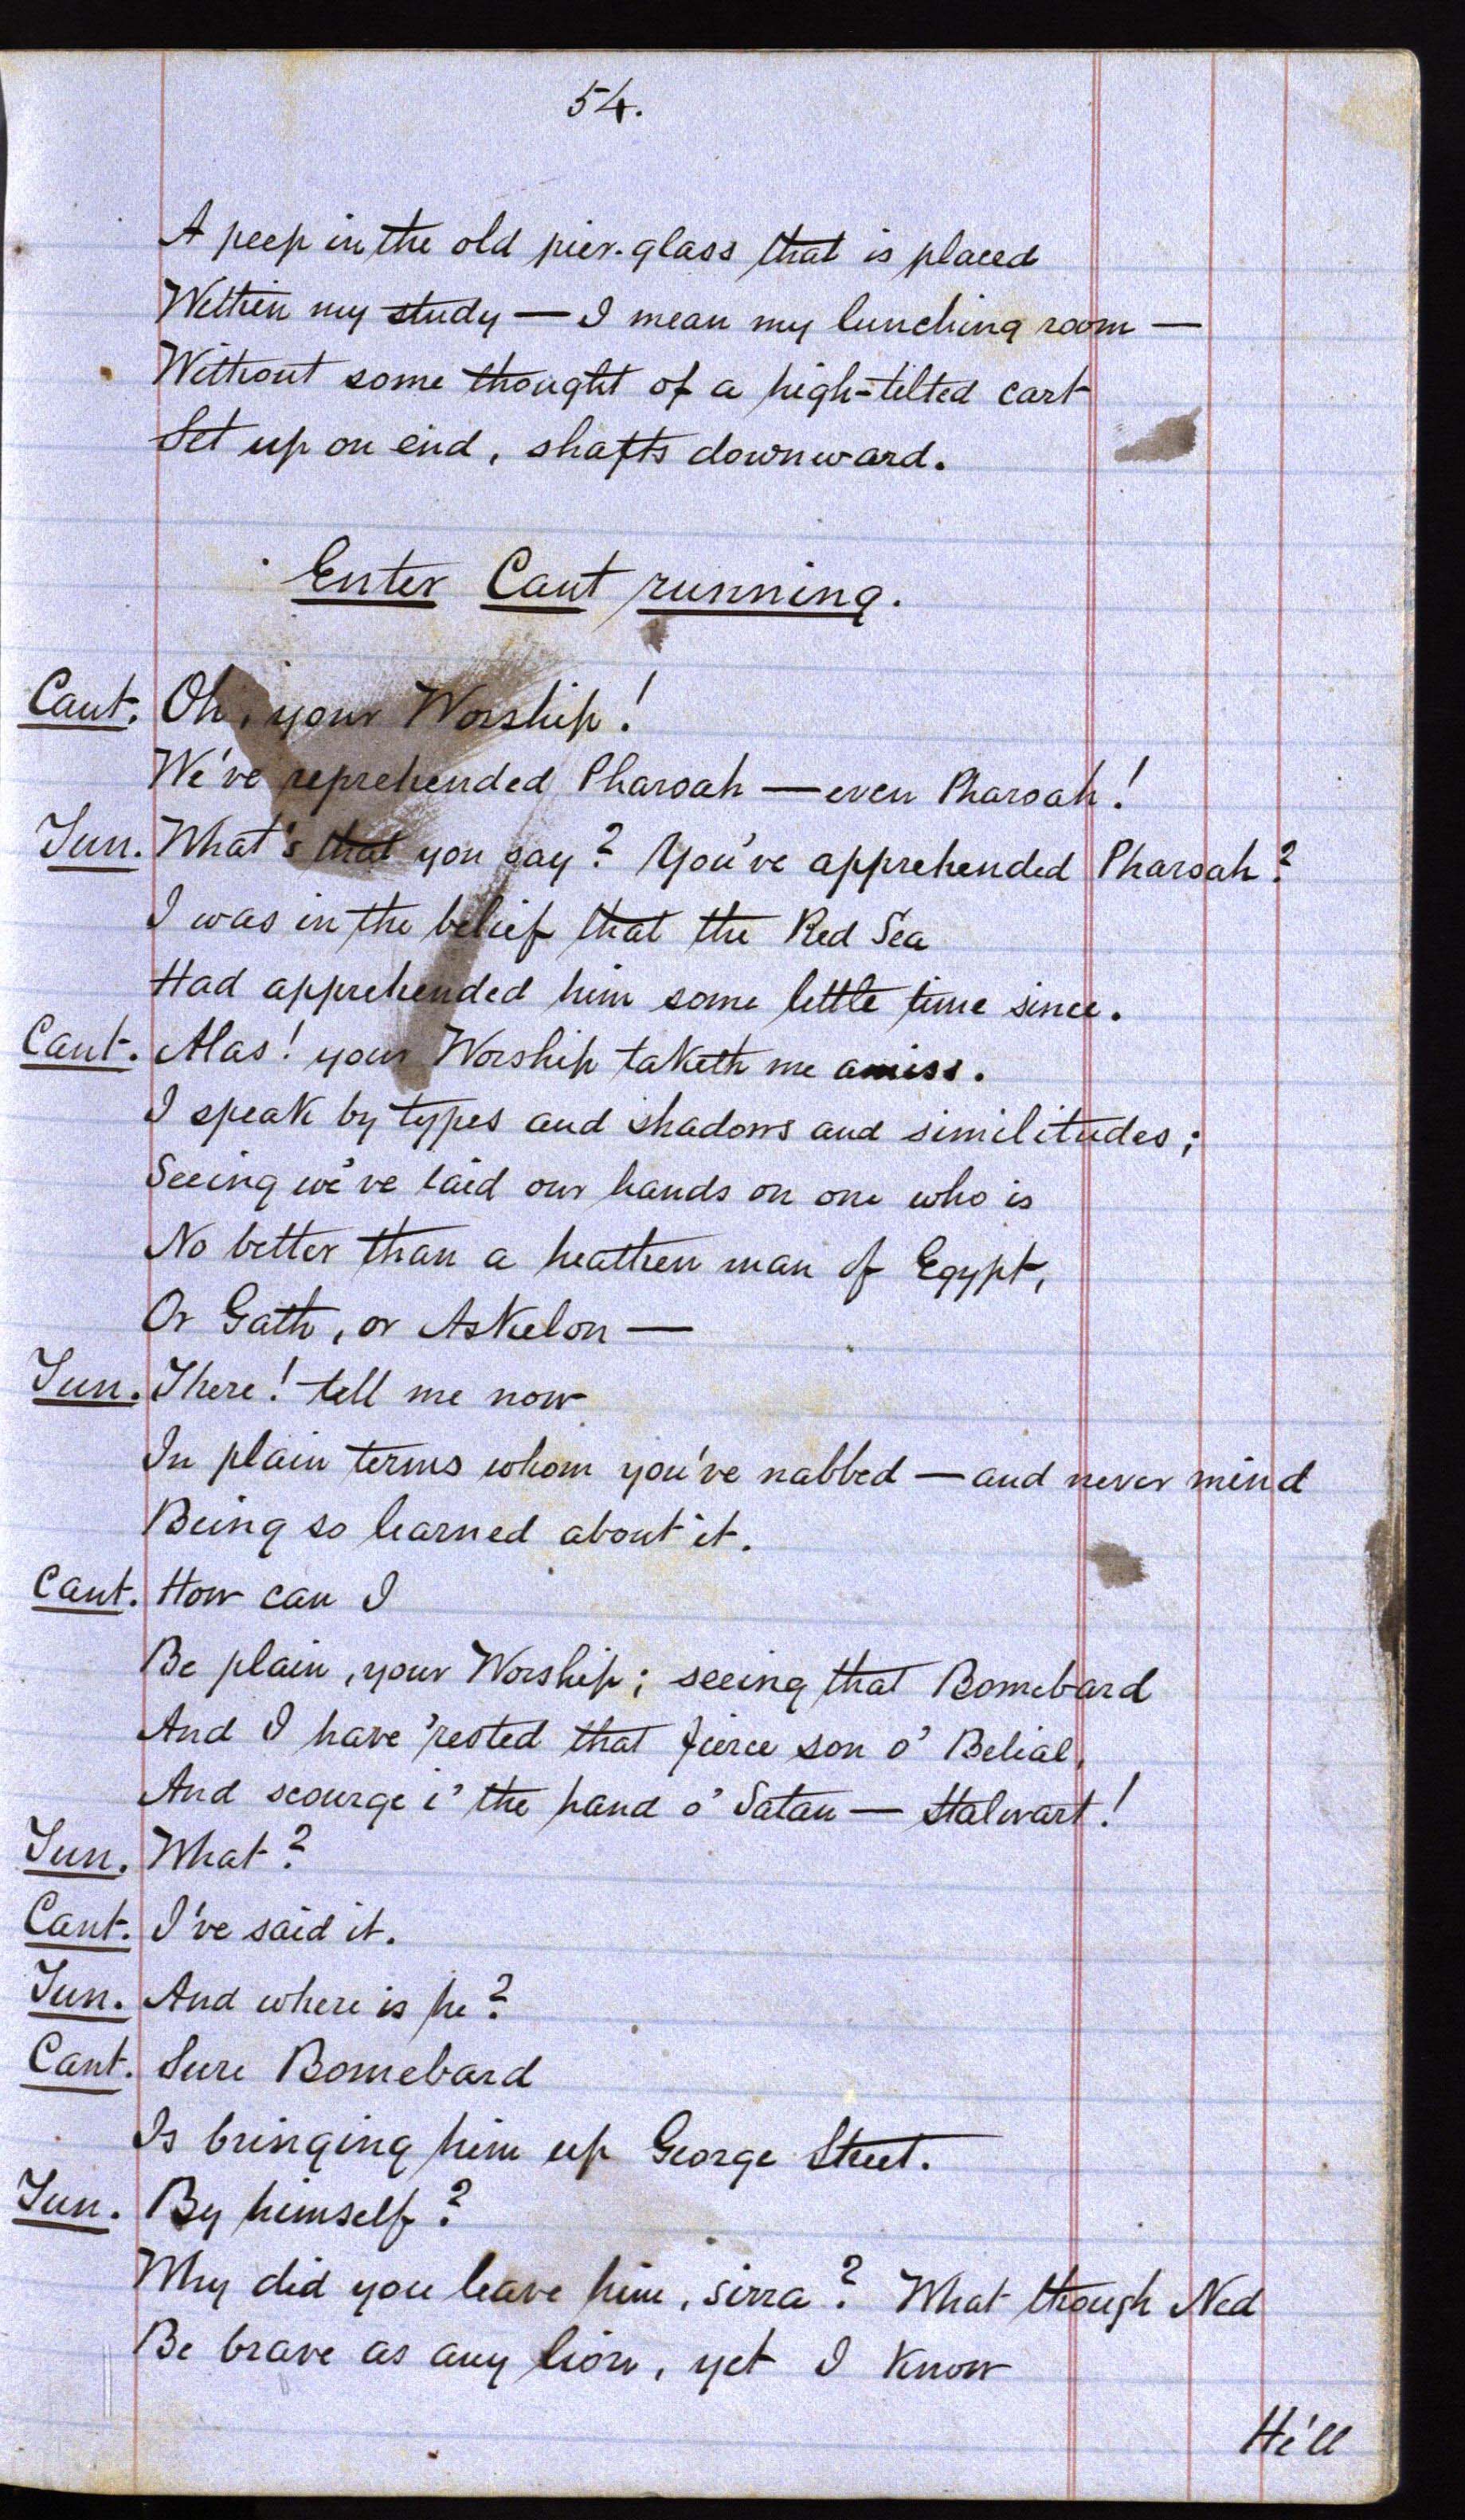 54.
A peep in the old pier-glass that is placed
Within my study — I mean my lunching room —
Without some thought of a high-tilted cart
Set up on end, shafts downward.
Enter Cant running.
Cant. Oh, your Worship!
We've reprehended Pharoah — even Pharoah!
Tun. What's that you say? You've apprehended Pharoah?
I was in the belief that the Red Sea
Had apprehended him some little time since.
Cant. Alas! your Worship taketh me amiss.
I speak by types and shadows and similitudes;
Seeing we've laid our hands on one who is
No better than a heathen man of Egypt,
Or Gath, or Askelon —
Tun. There! tell me now
In plain terms whom you've nabbed — and never mind
Being so learned about it.
Cant. How can I
Be plain, your Worship; seeing that Bomebard
And I have 'rested that fierce son o' Belial,
And scourge i' the hand o' Satan — Stalwart!
Tun. What?
Cant. I've said it.
Tun. And where is he?
Cant. Sure Bomebard
Is bringing him up George Street.
Tun. By himself?
Why did you leave him, sirra? What though Ned
Be brave as any lion, yet I know
He'll